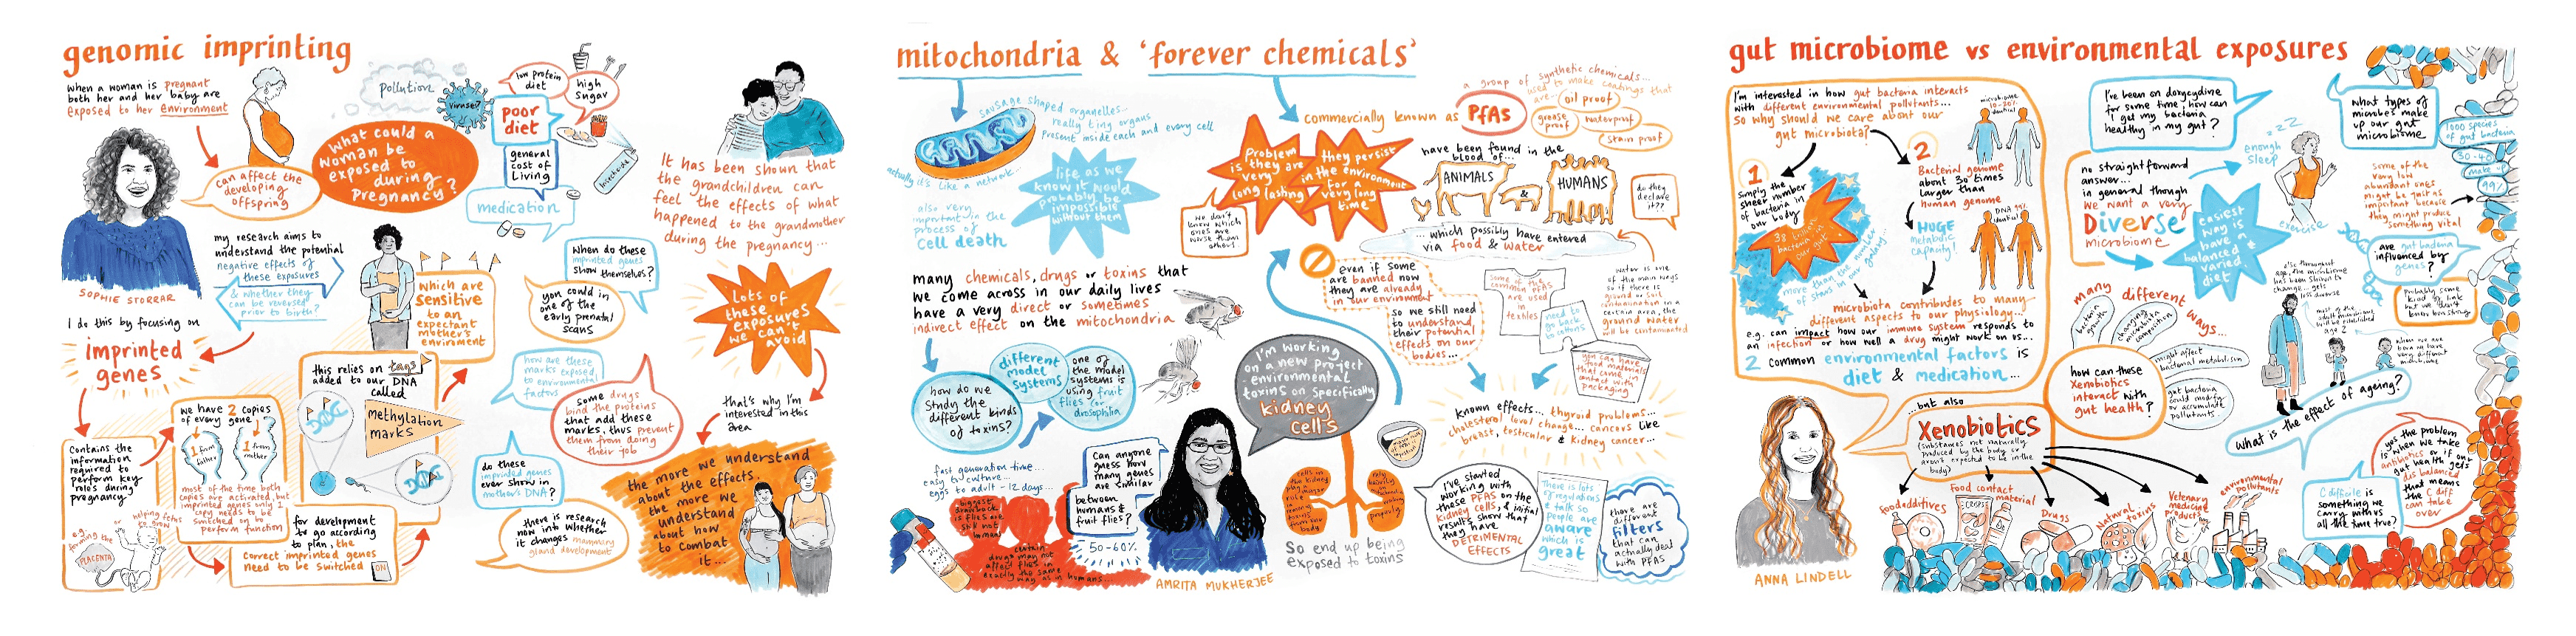 genomic imprinting
when a woman is pregnant
both her and her baby are
exposed to her environment
can affect the
developing
offspring
SOPHIE STORRAR
What could a
woman be
exposed to
during
Pregnancy?
pollution
Viruses?
low protein
diet
high
sugar
poor
diet
general
cost of
Living
medication
my research aims to
understand the potential
negative effects of
these exposures
& whether they
can be reversed
prior to birth?
I do this by focusing on
imprinted
genes
Contains the
information
required to
perform key
roles during
pregnancy
e.g.
forming the
PLACENTA
or helping fetus
to grow
we have 2 copies
of every gene
1 from
father
1 from
mother
most of the time both
copies are activated, but
imprinted genes only 1
copy needs to be
switched on to
perform function
this relies on tags
added to our DNA
called
methylation
marks
for development
to go according
to plan, the
correct imprinted genes
need to be switched ON
which are
sensitive
to an
expectant
mother's
enviroment
when do these
imprinted genes
show themselves?
you could in
one of the
early prenatal
scans
how are these
marks exposed
to environmental
factors
some drugs
bind the proteins
that add these
marks, thus prevent
them from doing
their job
do these
imprinted genes
ever show in
mother's DNA?
there is research
now into whether
it changes mammary
gland development
It has been shown that
the grandchildren can
feel the effects of what
happened to the grandmother
during the pregnancy...
Lots of
these
exposures
we can't
avoid
that's why I'm
interested in this
area
the more we understand
about the effects,
the more we
understand
about how
to combat
it...
mitochondria & 'forever chemicals'
sausage shaped organelles...
really tiny organs
present inside each and every cell
actually it's like a network...
life as we
know it would
probably be
impossible
without them
also very
important in the
process of
cell death
many chemicals, drugs or toxins that
we come across in our daily lives
have a very direct or sometimes
indirect effect on the mitochondria
how do we
study the
different kinds
of toxins?
different
model
systems
one of
the model
systems is
using fruit
flies (or
drosophila
fast generation time...
easy to culture...
eggs to adult - 12 days...
biggest
drawback
is flies are
still not
human
certain
drugs may not
affect flies in
exactly the same
way as in humans...
Can anyone
guess how
many genes
are similar
between
humans &
fruit flies?
50-60%
AMRITA MUKHERJEE
I'm working
on a new project
- environmental
toxins on specifically
kidney
cells
So end up being
exposed to toxins
commercially known as PFAS
a group of synthetic chemicals...
used to make coatings that
are...
oil proof
grease
proof
waterproof
stain proof
Problem
is they are
very
long lasting
they persist
in the environment
for a
very long
time
we don't
know which
ones are
worse than
others!
have been found in the
blood of...
ANIMALS
&
HUMANS
do they
declare
it??
... which possibly have entered
via food & water
even if some
are banned now
they are already
in our environment
so we still need
to understand
their potential
effects on our
bodies...
some of the
common PFAS
are used
in
textiles
water is one
of the main ways
so if there is
ground or soil
contamination in a
certain area, the
ground water
will be contaminated
Known effects... thyroid problems...
cholesterol level change... cancers like
breast, testicular & kidney cancer...
I've started
working with
these PFAS on the
kidney cells, & initial
results show that
they have
DETRIMENTAL
EFFECTS
There is lots
of regulations
& talk so
people are
aware
which is
great
there are
different
filters
that can
actually deal
with PFAS
gut microbiome vs environmental exposures
I'm interested in how gut bacteria interacts
with different environmental pollutants...
so why should we care about our
gut microbiota?
1
simply the
sheer number
of bacteria in
our body
more than the number
of stars in our galaxy...
2
Bacterial genome
about 30 times
larger than
human genome
HUGE
metabolic
capacity!
microbiota contributes to many
different aspects to our physiology...
e.g. can impact how our immune system responds to
an infection or how well a drug might work on us...
2 common environmental factors is
diet & medication...
...but also
Xenobiotics
(substances not naturally
produced by the body or
aren't expected to be in the
body)
ANNA LINDELL
food additives
food contact
material
Drugs
Natural
toxins
Vetenary
medicine
Products
environmental
pollutants
I've been on doxycycline
for some time, how can
I get my bacteria
healthy in my gut?
no straight forward
answer...
in general though
we want a very
Diverse
microbiome
easiest
way is
have a
balanced &
varied
diet
enough
sleep
zzz
exercise
what types of
microbes make
up our gut
microbiome
1000 species
of gut bacteria
30-40
make up
99%
some of the
very low
abundant ones
might be just as
important because
they might produce
something vital
are gut bacteria
influenced by
genes?
many different
ways...
bacteria
growth
changing
microbiome
composition
might affect
bacterial metabolism
gut bacteria
could modify
or accumulate
pollutants
how can these
Xenobiotics
interact with
gut health?
what is the effect of ageing?
yes the problem
is when we take
antibiotics or if our
gut health gets
dis balanced
that means
the C diff
can take
over
C difficile is
something we
carry with us
all the time true?